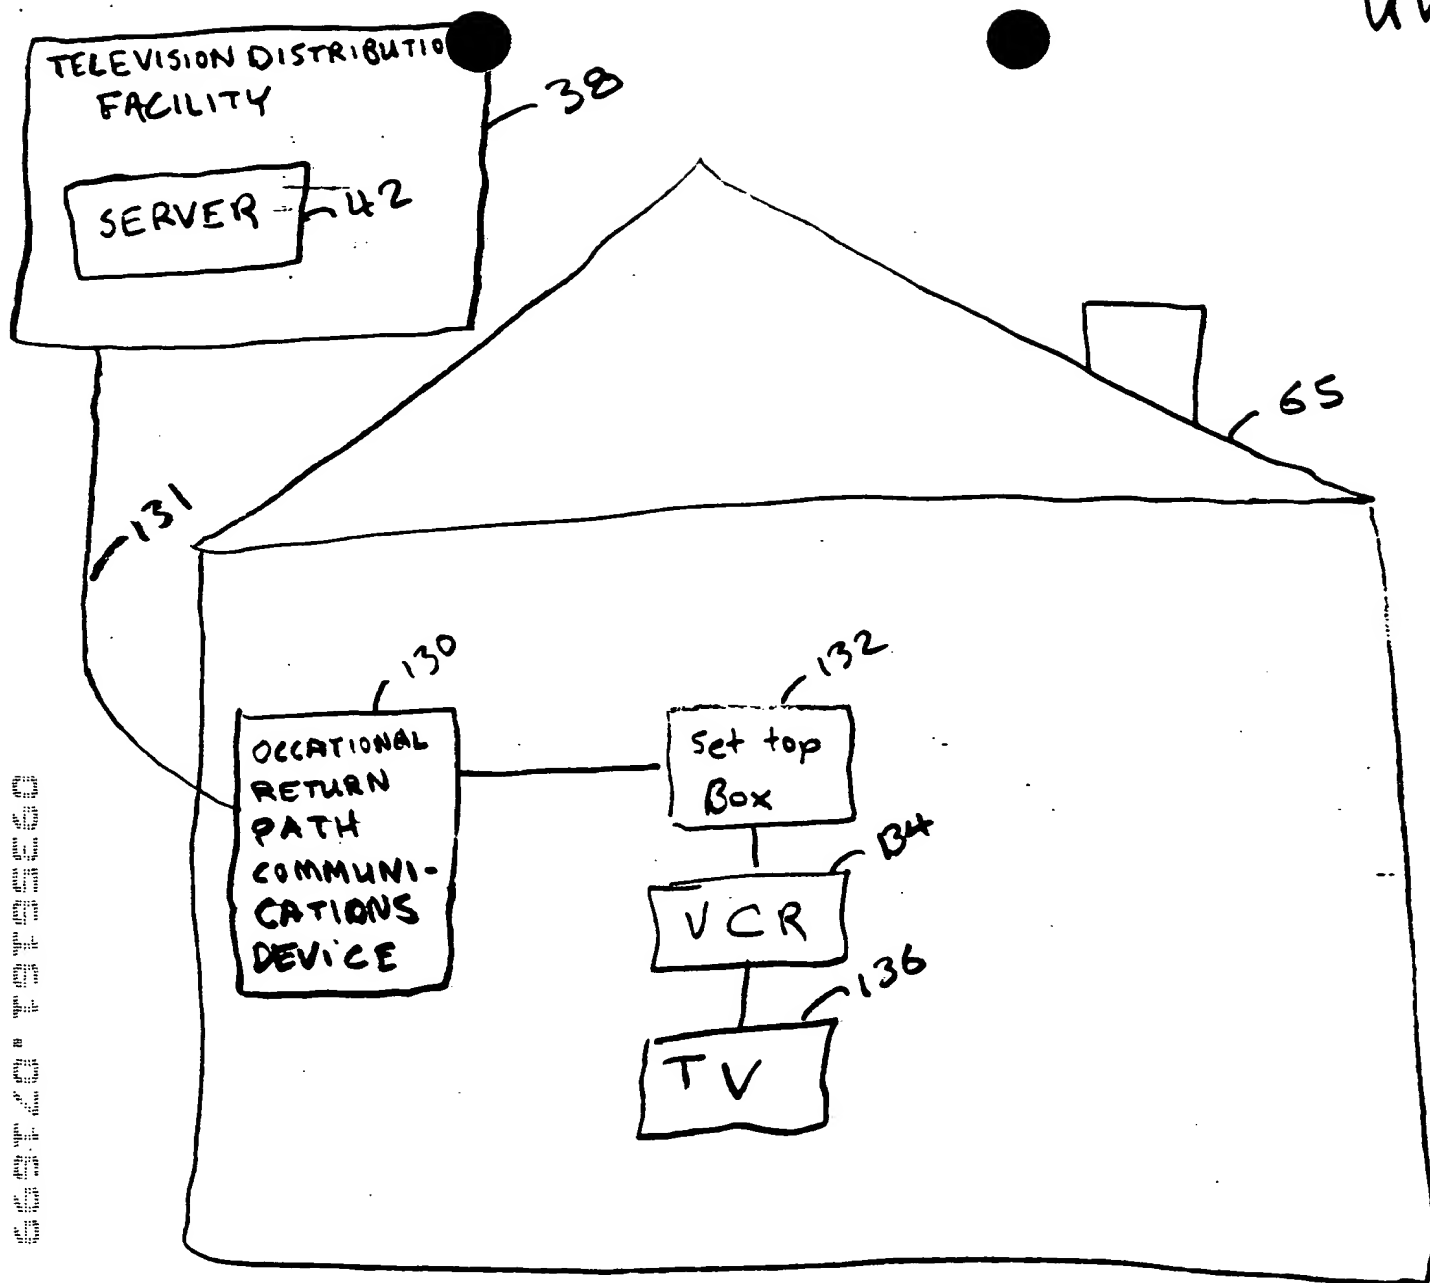 TELEVISION DISTRIBUTIO
FACILITY
38
SERVER
42
65
131
130
132
OCCATIONAL
RETURN
PATH
COMMUNI-
CATIONS
DEVICE
Set top
Box
134
VCR
136
TV